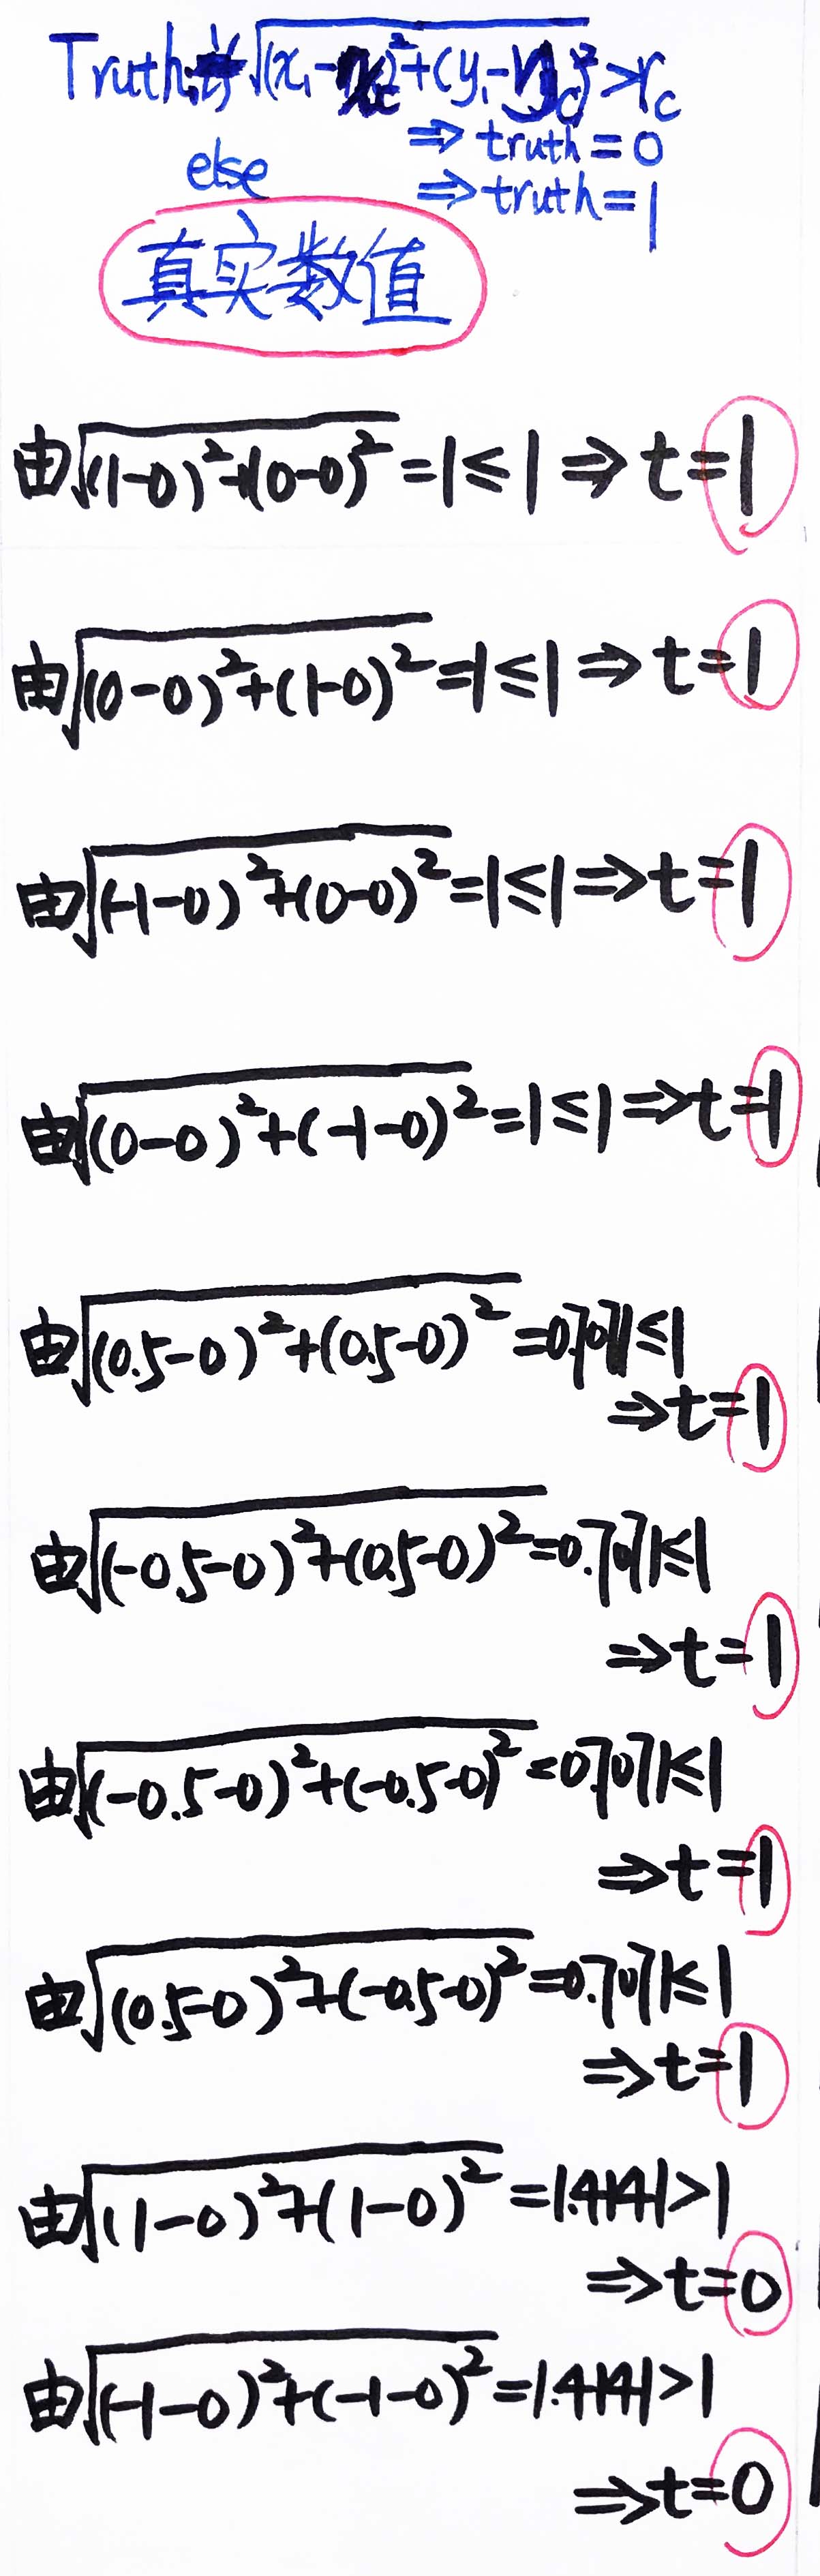 Truth: if √(x₁-x_c)²+(y₁-y_c)²>r_c
⇒truth=0
else ⇒truth=1
真实数值
由√(1-0)²+(0-0)²=1≤1⇒t=1
由√(0-0)²+(1-0)²=1≤1⇒t=1
由√(-1-0)²+(0-0)²=1≤1⇒t=1
由√(0-0)²+(-1-0)²=1≤1⇒t=1
由√(0.5-0)²+(0.5-0)²=0.7071≤1
⇒t=1
由√(-0.5-0)²+(0.5-0)²=0.7071≤1
⇒t=1
由√(-0.5-0)²+(-0.5-0)²=0.7071≤1
⇒t=1
由√(0.5-0)²+(-0.5-0)²=0.7071≤1
⇒t=1
由√(1-0)²+(1-0)²=1.4141>1
⇒t=0
由√(-1-0)²+(-1-0)²=1.4141>1
⇒t=0